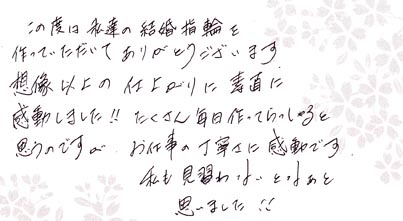 この度は私達の結婚指輪を
作っていただいてありがとうございます
想像以上の仕上がりに素直に
感動しました!! たくさん毎日作ってらっしゃると
思うのですが、お仕事の丁寧さに感動です
私も見習わないとなあと
思いました!!